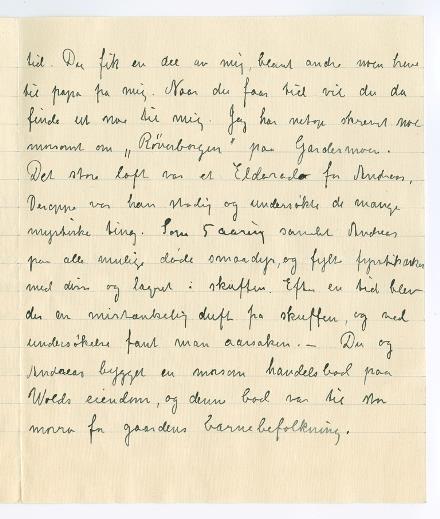 tid. Du fik en del av mig, blant andre noen breve
til papa fra mig. Naar du faar tid vil du da
finde ut noe til mig. Jeg har netop skrevet noe
morsomt om „Röverborgen" paa Gardermoen.
Det store loft var et Eldorado for Andreas,
Deroppe var han stadig og undersökte de mange
mystiske ting. Som 5 aaring samlet Andreas
paa alle mulige döde smaadyr, og fylte fyrstikæsker
med dem og lagret i skuffen. Efter en tid blev
der en mistænkelig duft fra skuffen, og ved
undersökelse fant man aarsaken. — Du og
Andreas bygget en morsom handelsbod paa
Wolds eiendom, og denne bod var til stor
morro for gaardens barnebefolkning.